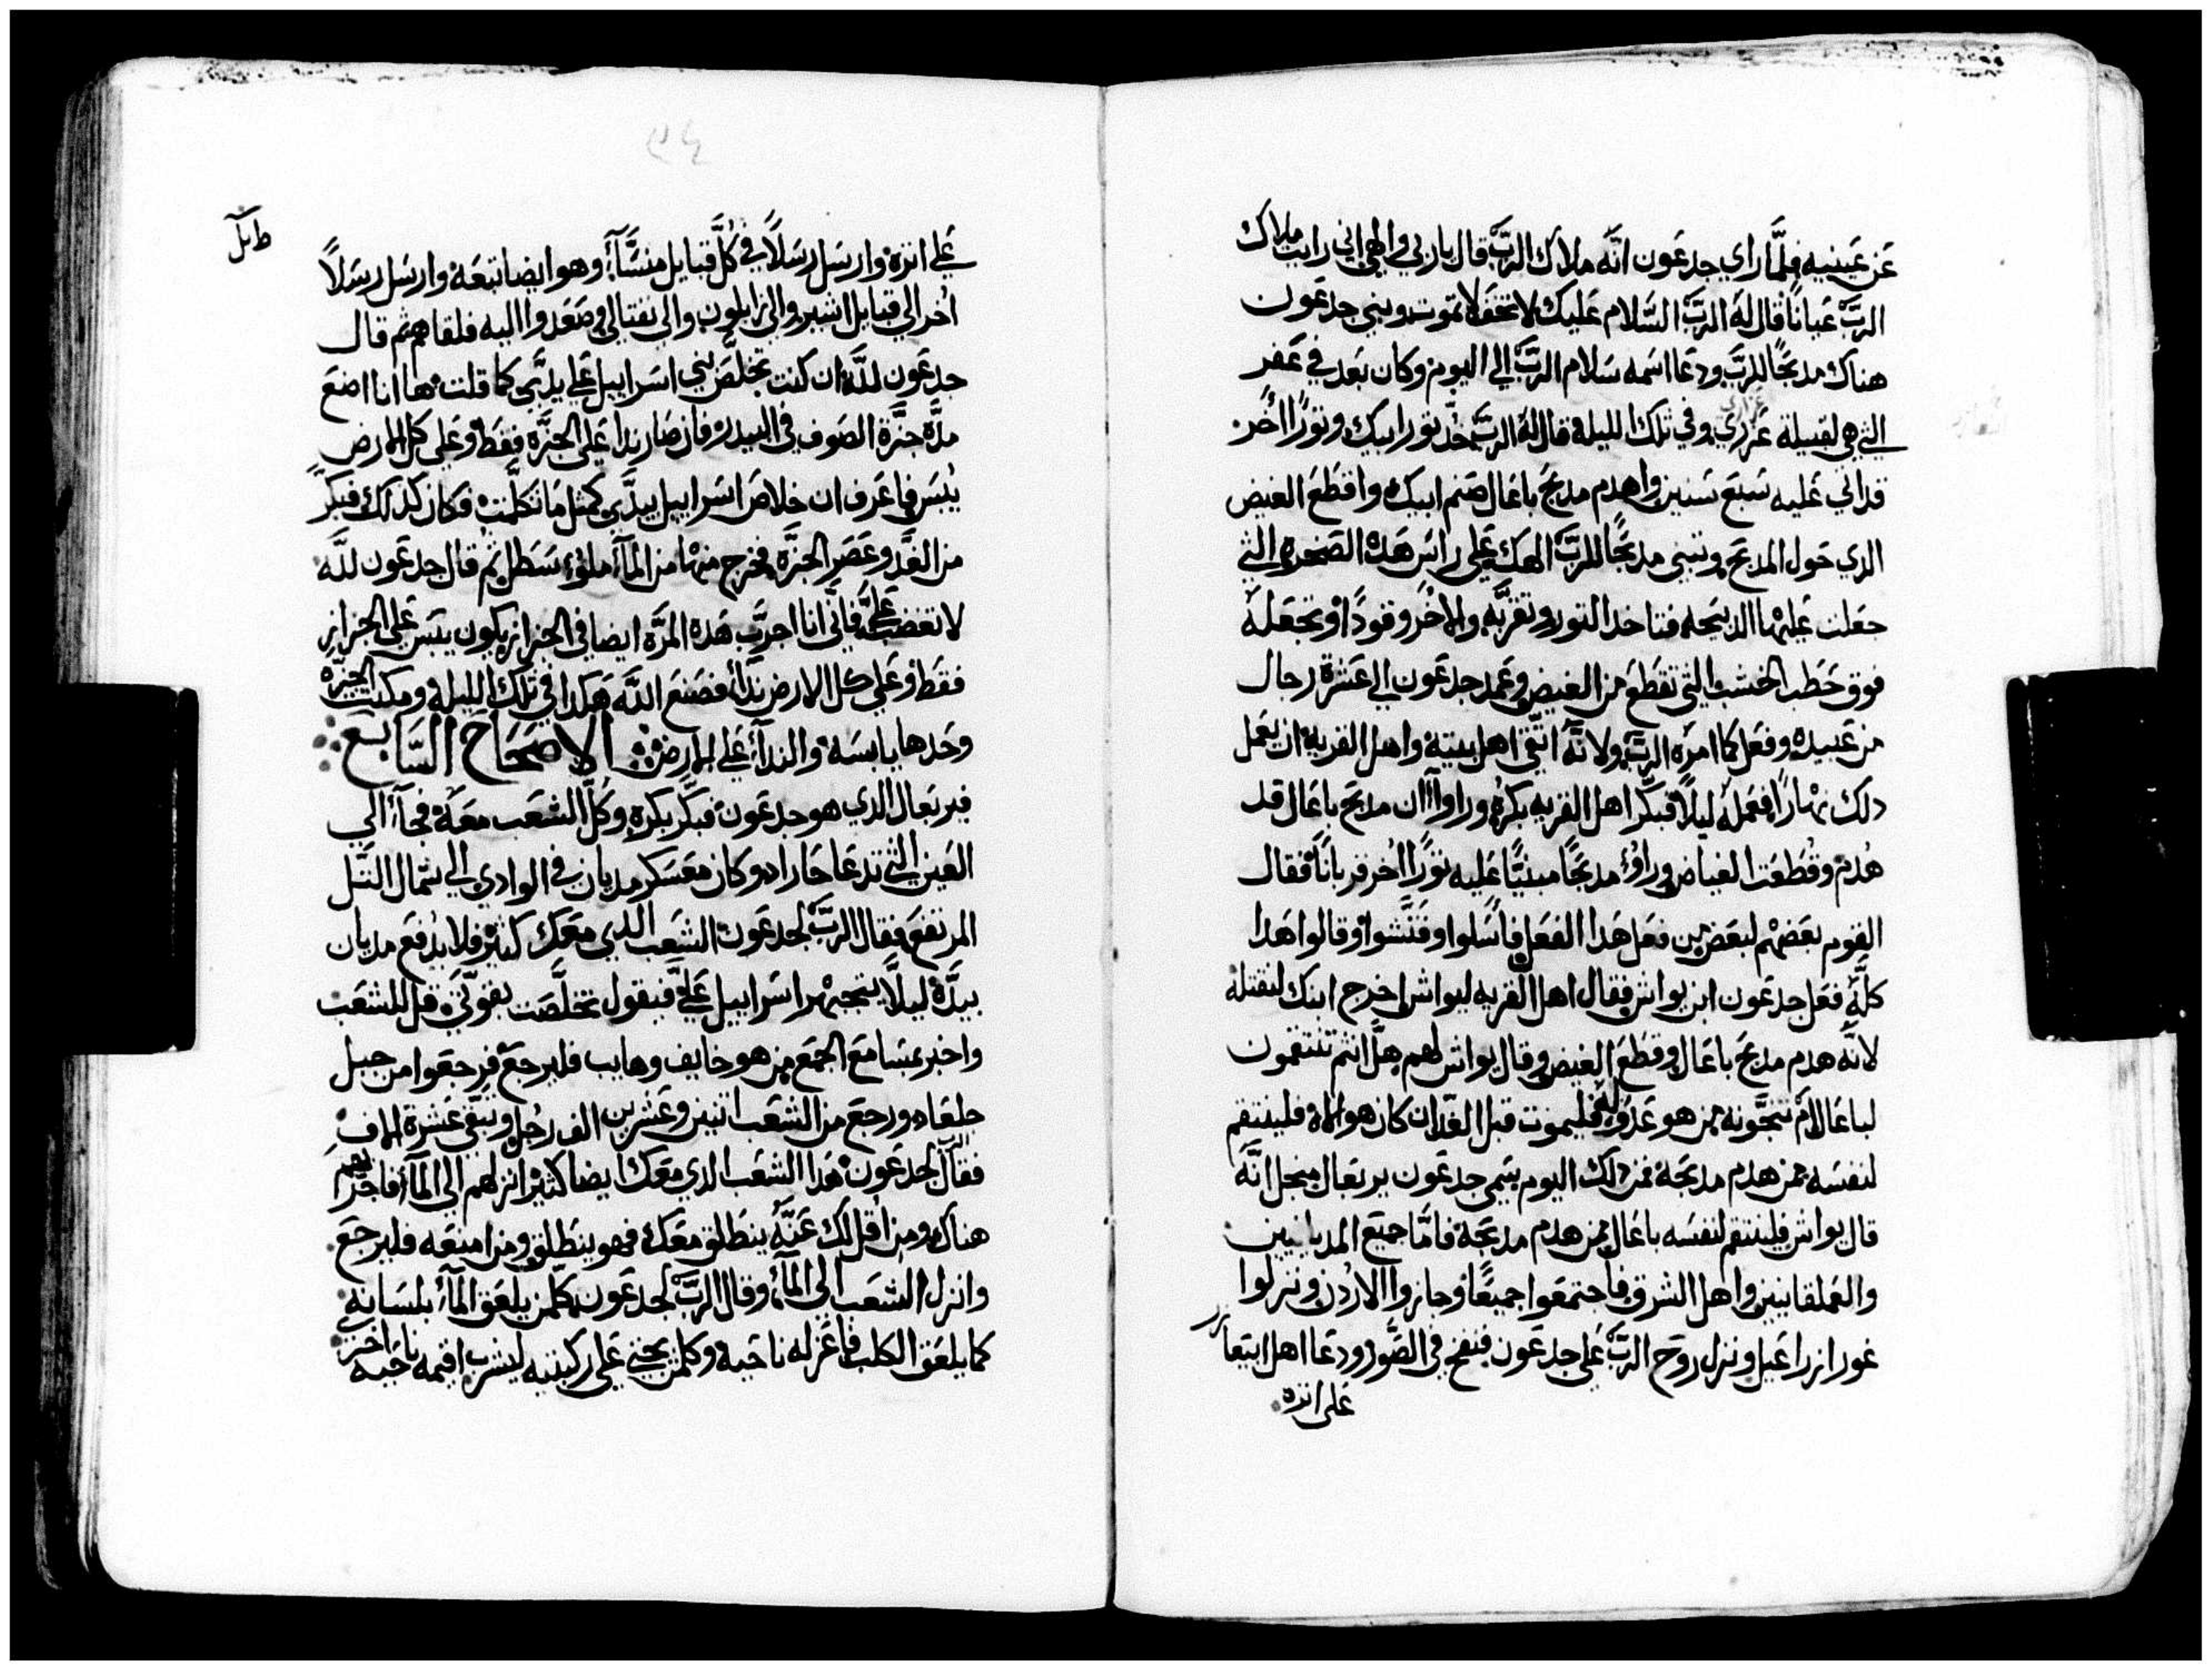 عَن عَينيه فلمَّا راي جدعَون انَّه ملاك الربّ قال ياربي والهي اني رايت ملاك
الربّ عَيانًا فقال لهَ الربّ السَّلام عَليك لا تخف لا تموت وبني جدعَون
هناك مدبحًا للربّ ودعَا اسمه سَلام الربّ الي اليوم وكان بَعد في عَفر
التي هي لقبيلة عَزري وفي تلك الليلة قال لهَ الربّ خُد تور ابيك وتورًا اُخر
قد اتي عَليه سَبعَ سَنين واهدم مدبحَ باعَال صَنم ابيك واقطعَ الغيض
الدي حَول المدبحَ وتبني مدبحًا للربّ الهك عَلي راسَ هَده الصَخره التي
جعَلت عَليها الدبيَحه فتاخد التور وتقربَّه والاُخر وقودًا وتجعَلهَ
فوق حَطب الخشب التي تقطعَ من الغيض وعَمد جدعَون الي عَشرة رجال
من عَبيده وفعَل كما امرَه الربّ ولانَّه اتَّقي اهل بيته واهل القريه ان يعَمل
دلك نهارًا فعَمله ليلًا فبكَّر اهل القريه بكرة وراوا ان مدبحَ باعَال قد
هُدم وقُطعَت الغياض وراوُ مدبحًا مبنيًّا عَليه تورًا اُخر قربانًا فقال
القوم بعَضهم لبعَض من فعَل هَدا الفعَل فاسَلوا وفتَّشوا وقالوا هَدا
كلَّه فعَل جدعَون ابن يواش فقال اهل القريه ليواش اخرج ابنك لنقتله
لانَّه هدم مدبحَ باعَال وقطعَ الغيض وقال يواش لهم هل انتم تنتقمون
لباعَال ام تنجّونه من هو عَدوَّه فليموت قبل الغد ان كان هو اله فلينتقم
لنفسَه ممن هدم مدبحَه فمن دلك اليوم سَمي جدعَون يربعَال من اجل انَّه
قال يواش فلينتقم لنفسَه باعَال ممن هدم مدبحَه فامَّا جميَع المديانيين
والعَملقانيين واهل الشرق فاجتمعَوا جميعًا وجازوا الاردن ونزلوا
غور ازراعَيل ونزل روح الربّ عَلي جدعَون فنفخ في الصَّور ودعَا اهل ابيعَازر
عَلي اتره
عَلي اتره وارسَل رسَلًا في كلَّ قبايل منسَّا وهو ايضا تبعَه وارسَل رسَلًا
اُخر الي قبايل اشير والي زابلون والي نفتالي وصَعَدوا اليه فلقاهم ثم قال
جدعَون للَّه ان كنت تخلَّصَ بني اسَراييل عَلي يدَّي كما قلت ها انا اضعَ
مدَّة جزَّة الصَوف في البيدر فان صَار ندا عَلي الجزَّه فقط وعَلي كل الارض
يبسَ فاعَرف ان خلاصَ اسَراييل بيدَّي كمثل ما تكلَّمت فكان كدلك فبكَّر
من الغَد وعَصَر الجزَّه فخرج منها من المآ ملو سَطل ثم قال جدعَون للَّه
لا تغضب عليَّ فانَّي انا اجرّب هَده المرَّه ايضا في الجزاز يكون يبسَ عَلي الجزاز
فقط وعَلي كل الارض ندا فصَنع اللَّه هَكدا في تلك الليله ومكثت الجزَّه
وحَدها يابسَه والندا عَلي الارض الاصَحَاح السَّابعَ
فيربعَال الدي هو جدعَون فبكَّر بكره وكلَّ الشعَب معَه فجآ الي
العَين التي تدعَا حَاراد وكان معَسكر مديان في الوادي الي شمال التَّل
المرتفعَ فقال الربّ لجدعَون الشعَب الدي معَك كتير فلا يدفعَ مديان
بيدَّه ليلَّا يتجبهر اسَراييل عَليَّ فيقول تخلَّصَت بقوتَّي قل للشعَب
واخبر بمسَامعَ الجمَع من هو خايف وهايب فليرجعَ فرجعَوا من جبل
جلعَاد ورجعَ من الشعَب اتنين وعَشرين الف رجُل وتبقي عَشرة الاف
فقال الرب لجدعَون هَدا الشعَب الدي معَك ايضا كتير انزلهم الي المآ فاجرّبهم
هناك ومن اقل لك عَنَّه ينطلق معَك فهو ينطلق ومن امنعَه فليرجعَ
وانزل الشعَب الي المآ وقال الربّ لجدعَون كلمن يلعَق المآ بلسَانه
كما يلعَق الكلب فاعَزله ناحَية وكلمن يجثي عَلي ركبتيه ليشرب اقيمه ناحَيه اخر